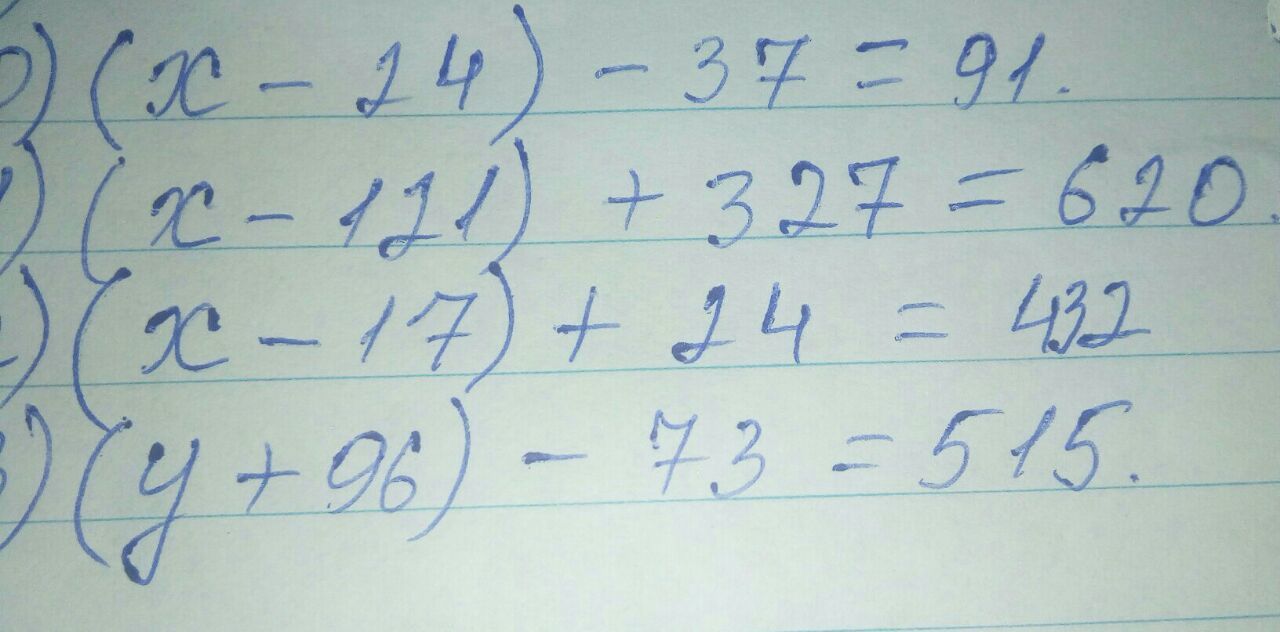 ) (x - 24) - 37 = 91.
) (x - 121) + 327 = 620.
) (x - 17) + 24 = 432
) (y + 96) - 73 = 515.